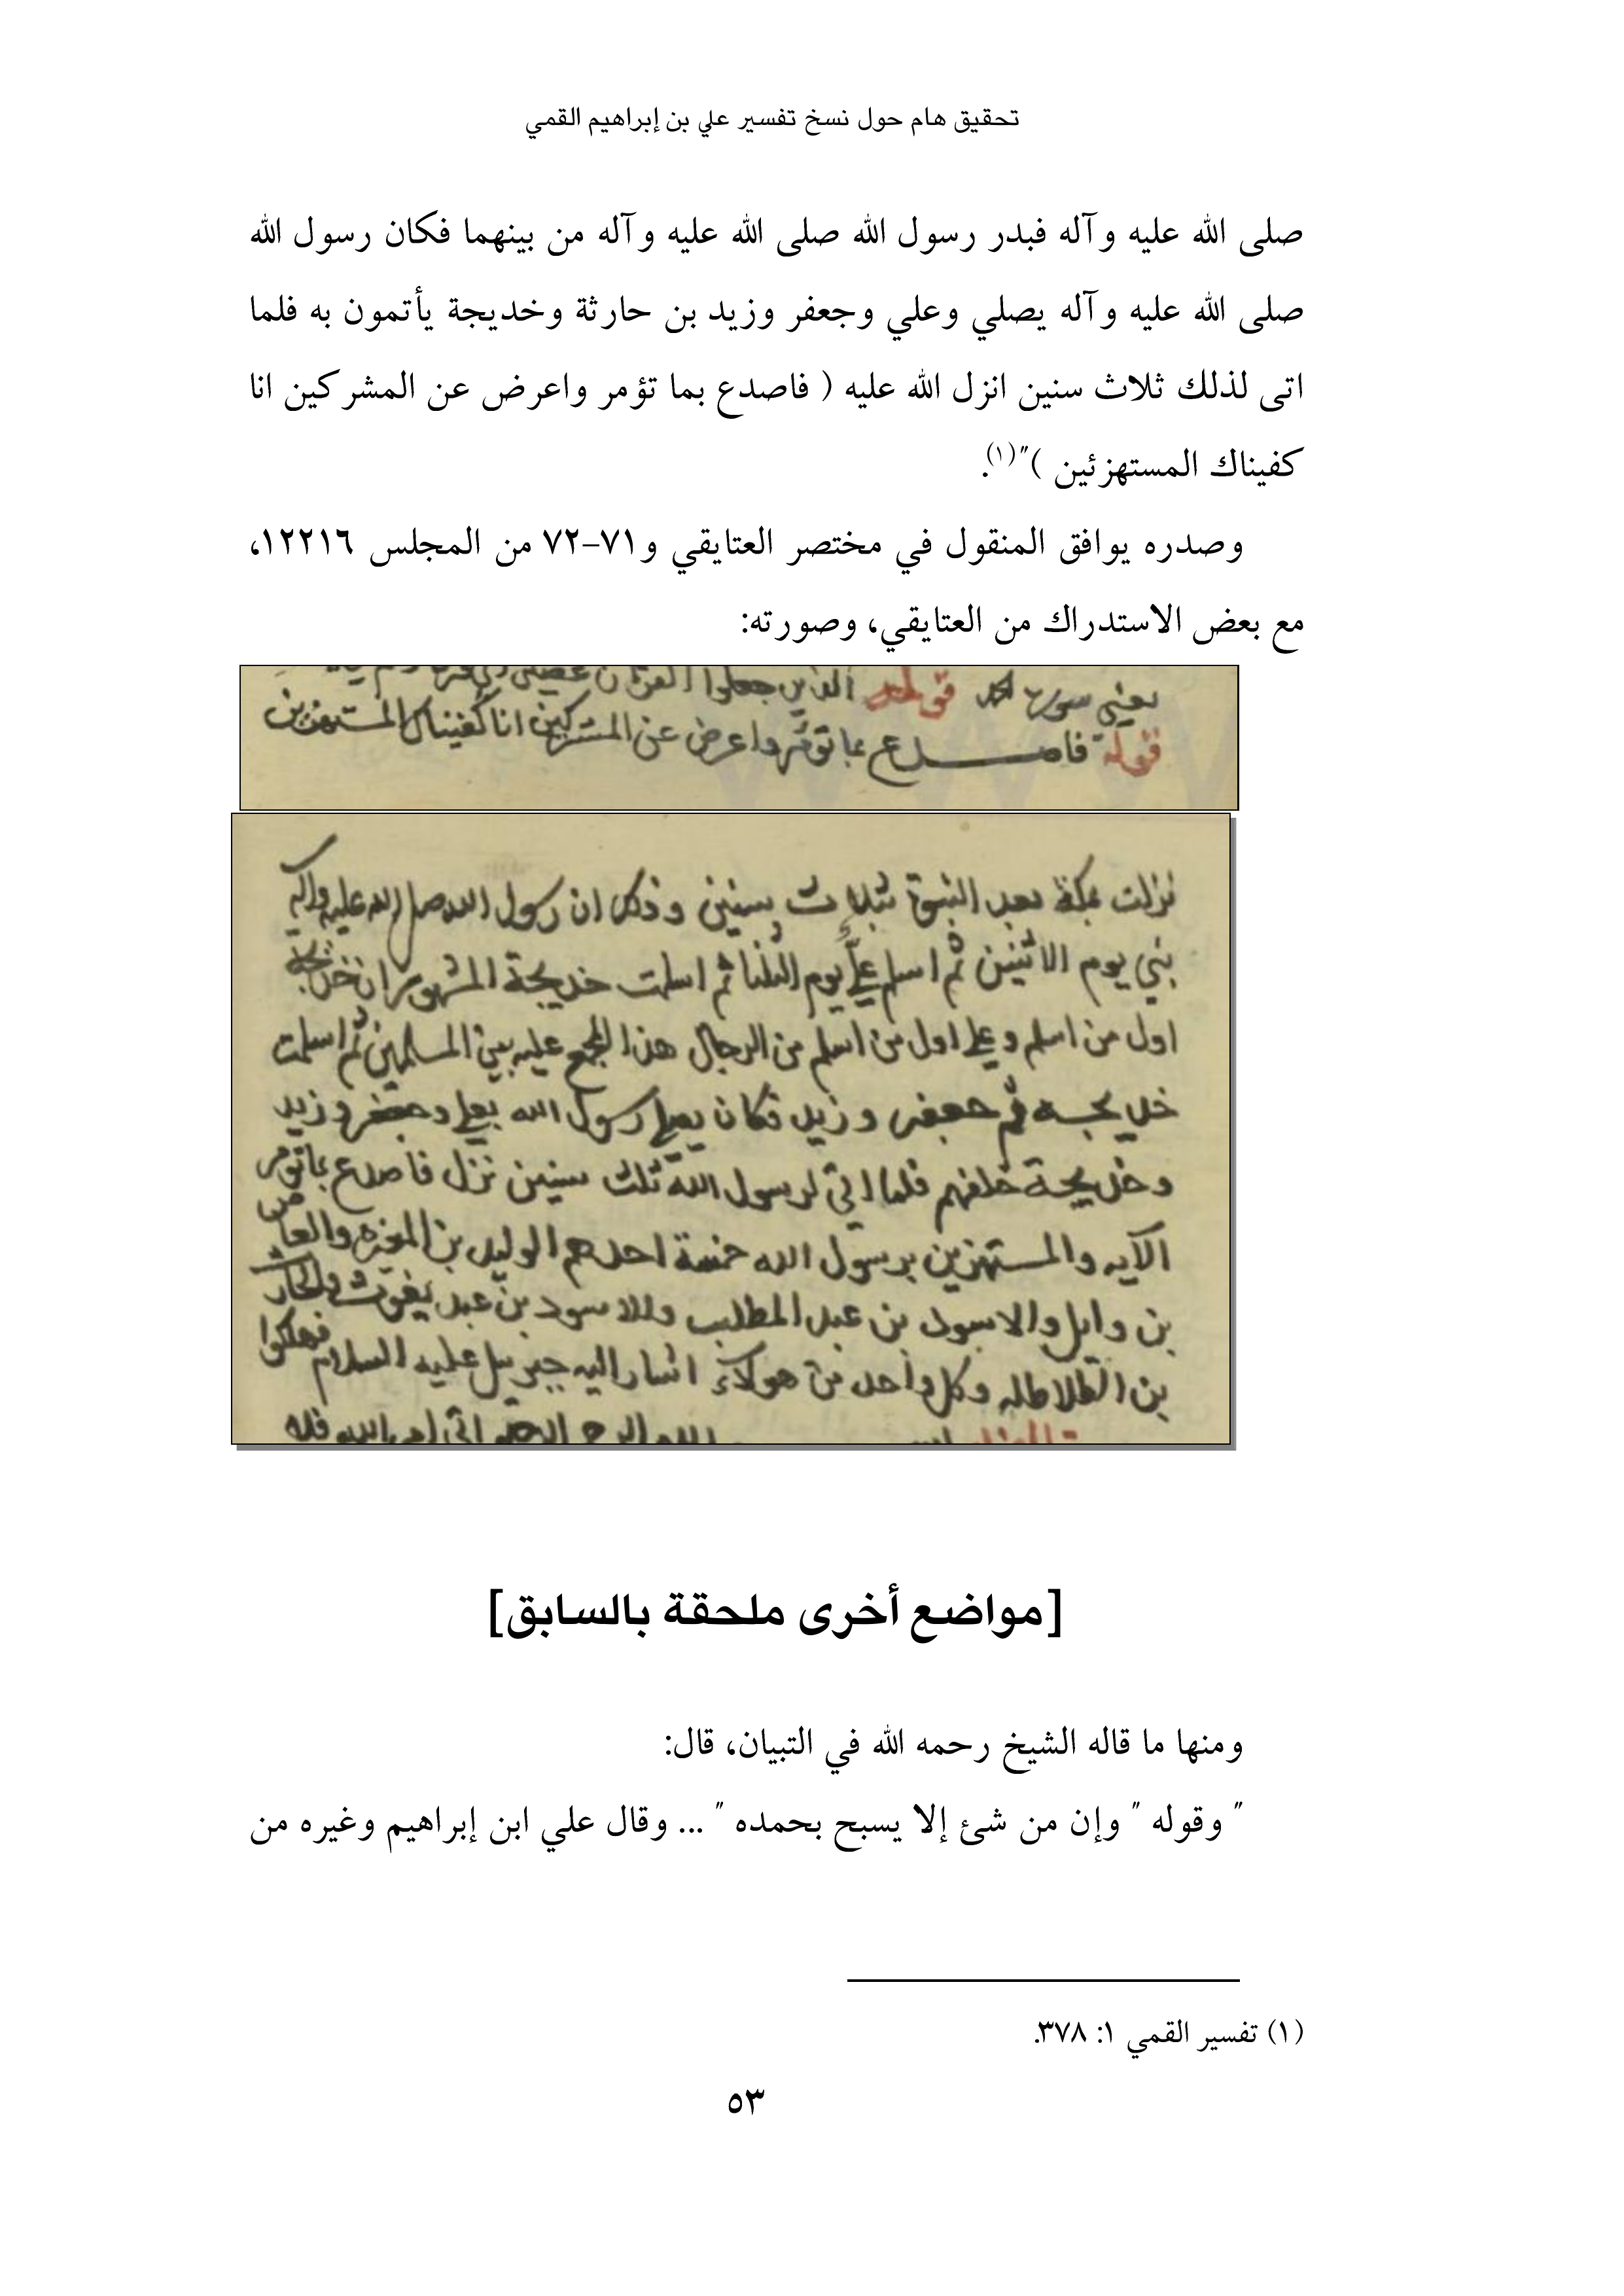 تحقيق هام حول نسخ تفسير علي بن إبراهيم القمي
صلى الله عليه وآله فبدر رسول الله صلى الله عليه وآله من بينهما فكان رسول الله
صلى الله عليه وآله يصلي وعلي وجعفر وزيد بن حارثة وخديجة يأتمون به فلما
اتى لذلك ثلاث سنين انزل الله عليه ( فاصدع بما تؤمر واعرض عن المشركين انا
كفيناك المستهزئين )"(١).
وصدره يوافق المنقول في مختصر العتايقي و٧١-٧٢ من المجلس ١٢٢١٦،
مع بعض الاستدراك من العتايقي، وصورته:
يعني سورة الحمد قوله الذين جعلوا القرآن عضين
قوله فاصدع بما تؤمر واعرض عن المشركين انا كفيناك المستهزئين
نزلت بمكة بعد النبوة بثلاث سنين وذلك ان رسول الله صلى الله عليه وآله
نبي يوم الاثنين ثم اسلم علي يوم الثلثا ثم اسلمت خديجة المشهور ان خديجة
اول من اسلم وعلي اول من اسلم من الرجال هذا المجمع عليه بين المسلمين ثم اسلمت
خديجه ثم جعفر وزيد فكان يصلي رسول الله بعلي وجعفر وزيد
وخديجة خلفهم فلما اتى لرسول الله ثلث سنين نزل فاصدع بما تؤمر
الآيه والمستهزين برسول الله خمسة احدهم الوليد بن المغيره والعاص
بن وايل والاسود بن عبد المطلب والاسود بن عبد يغوث والحارث
بن الطلاطله وكل واحد من هولاء اشار اليه جبرييل عليه السلام فهلكوا
[مواضع أخرى ملحقة بالسابق]
ومنها ما قاله الشيخ رحمه الله في التبيان، قال:
" وقوله " وإن من شئ إلا يسبح بحمده " ... وقال علي ابن إبراهيم وغيره من
(١) تفسير القمي ١: ٣٧٨.
٥٣